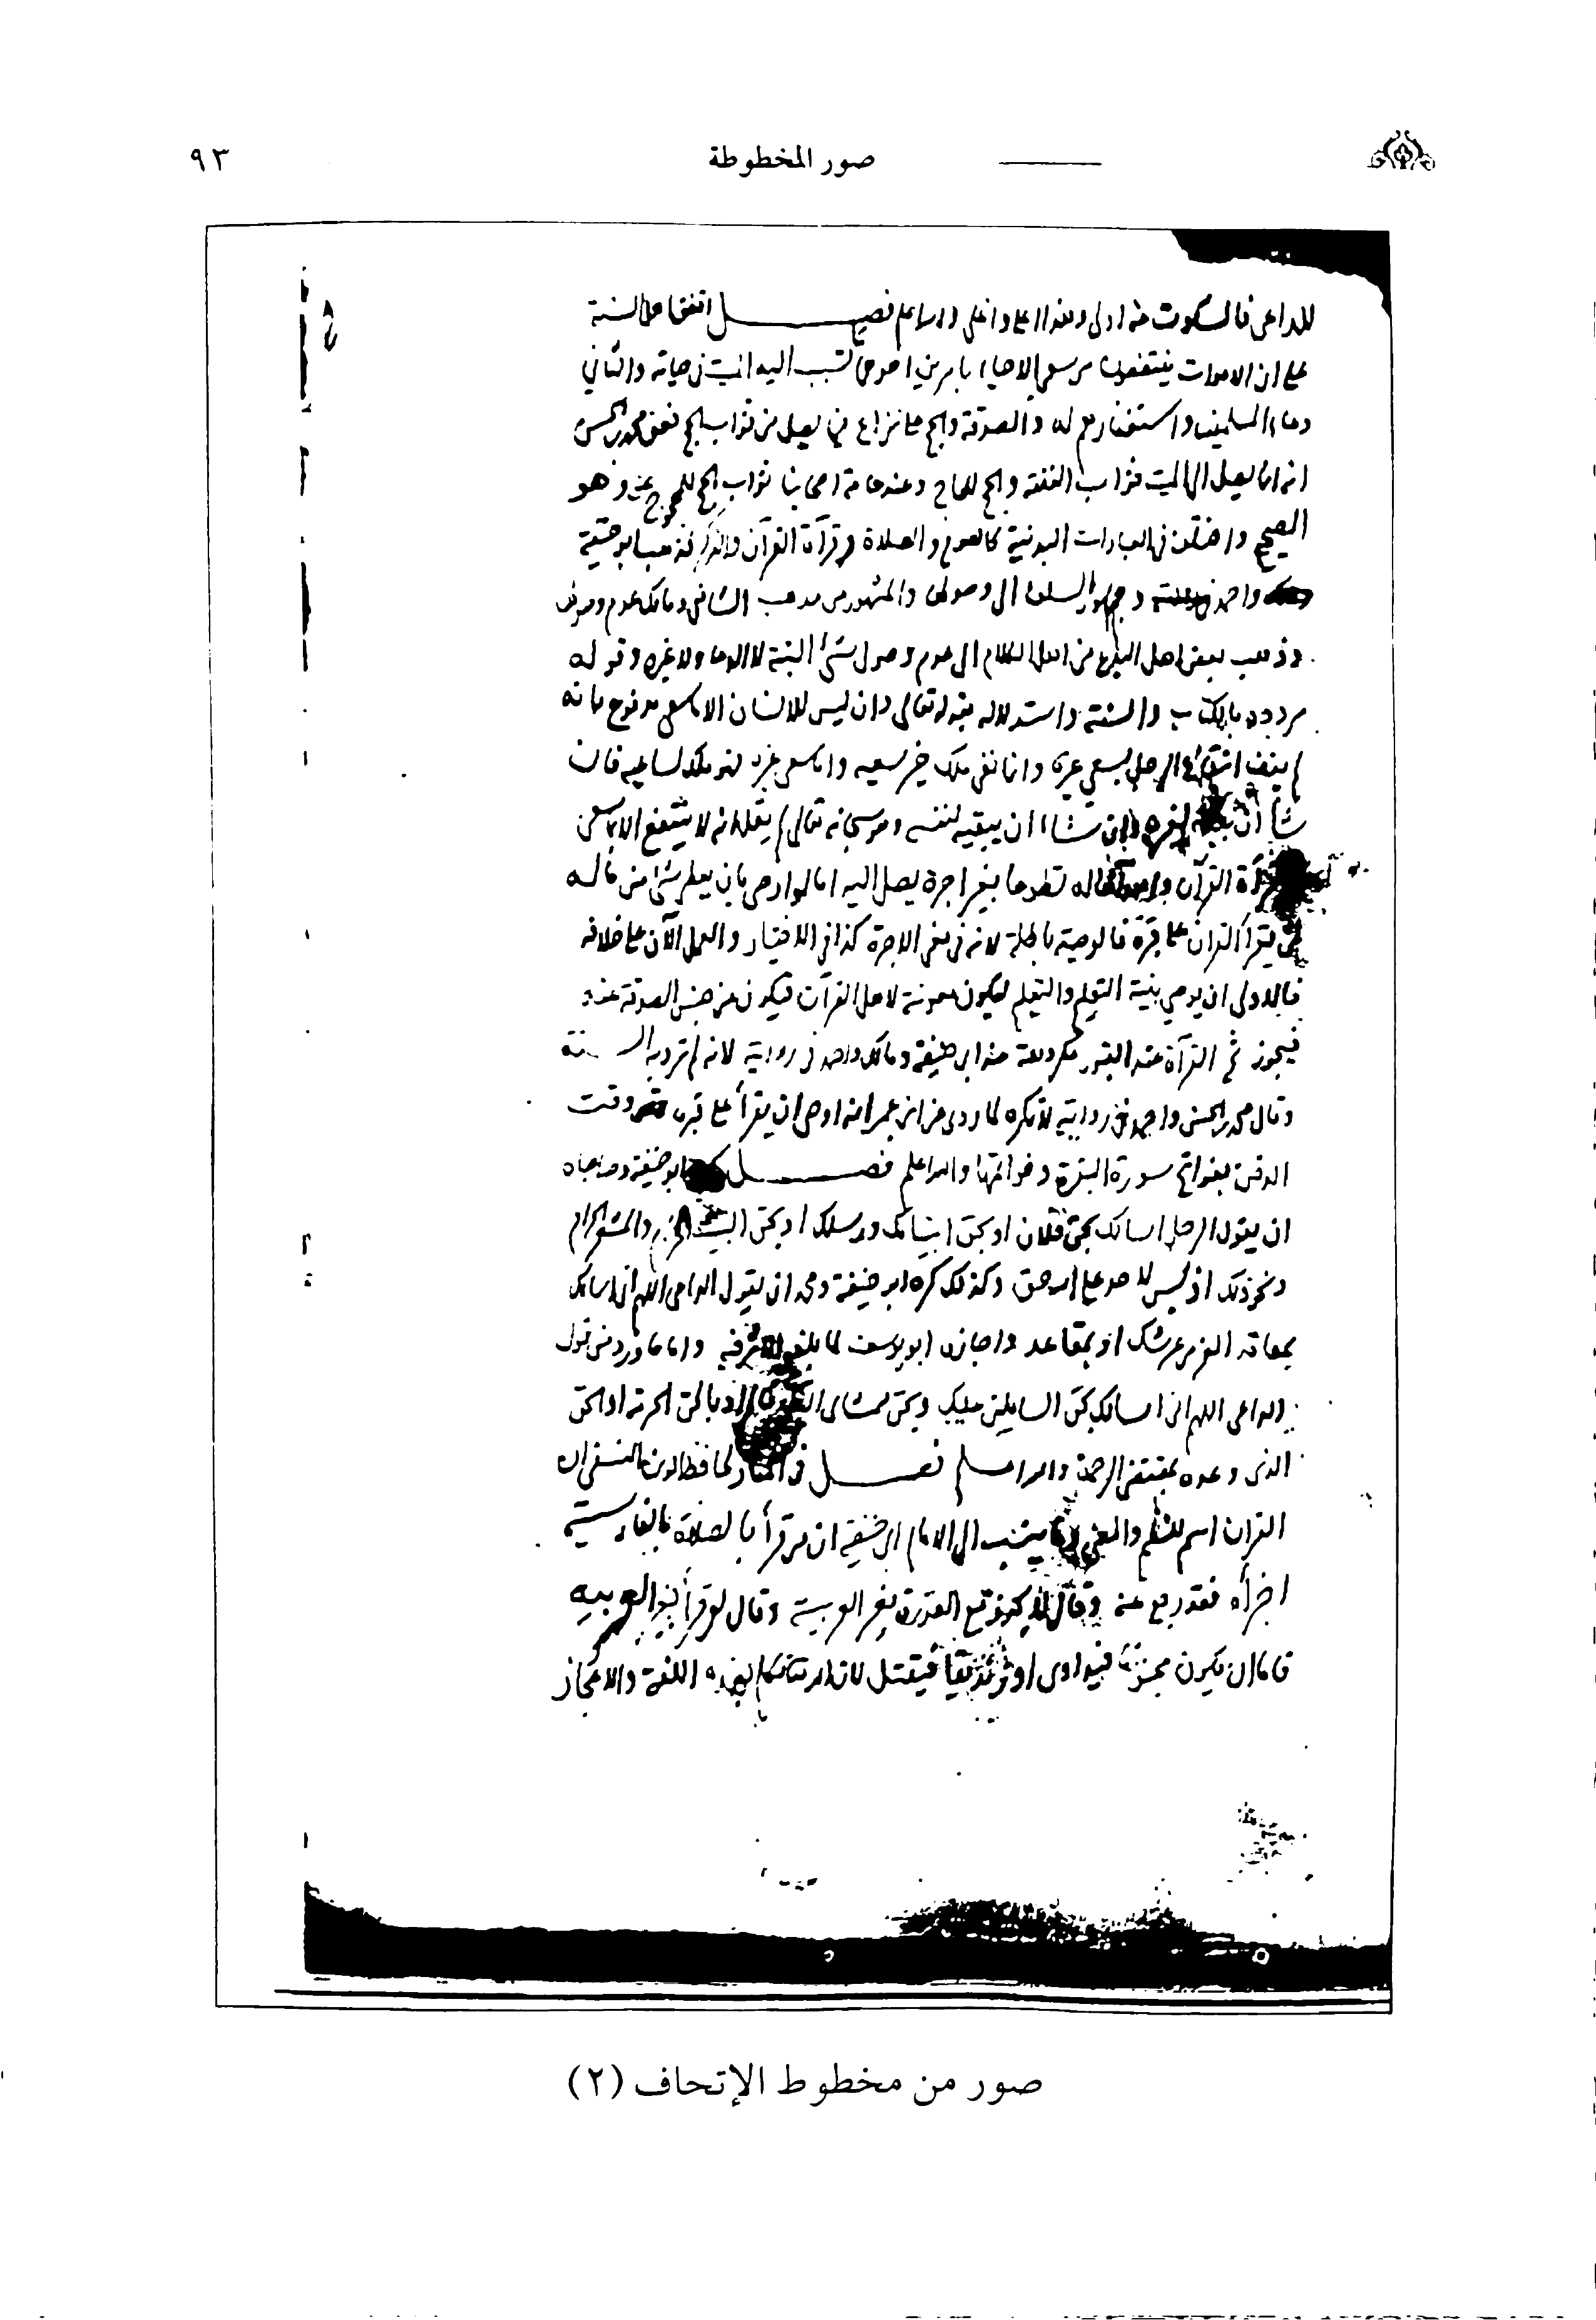 صور المخطوطة
٩٣
فالسكوت عنه اولى وهذا اعلى واغلى والله اعلم فصل اتفق اهل السنة
على ان الاموات ينتفعون من سعي الاحياء بامرين احدهما تسبب اليه الميت في حياته والثاني
دعاء المسلمين واستغفارهم له والصدقة والحج على نزاع فيما يصل من ثواب الحج فعن محمد بن الحسن
انه انما يصل الى الميت ثواب النفقة والحج للحاج وعند عامة اصحابنا ثواب الحج للمحجوج عنه وهو
الصحيح واختلف في العبادات البدنية كالصوم والصلاة وقراءة القرآن والذكر فذهب ابو حنيفة
واحمد وجمهور السلف الى وصولها والمشهور من مذهب الشافعي ومالك عدم وصولها
وذهب بعض اهل البدع من اهل الكلام الى عدم وصول شئ البتة لا الدعاء ولا غيره وقوله
مردود بالكتاب والسنة واستدلاله بقوله تعالى وان ليس للانسان الا ما سعى مدفوع بانه
لم ينف انتفاع الرجل بسعي غيره وانما نفى ملك غير سعيه واما سعي غيره فهو ملك لساعيه فان
شاء ان لغيره وان شاء ان يبقيه لنفسه وهو سبحانه تعالى لم يقل انه لا ينتفع الا بما سعى
القرآن له تطوعا بغير اجرة يصل اليه اما لو اوصى بان يعطى شئ من ماله
لمن يقرأ القرآن على قبره فالوصية باطلة لانه في معنى الاجرة كذا في الاختيار والعمل الآن على خلافه
فالاولى ان يوصي بنية التعلم والتعليم ليكون معونة لاهل القرآن فيكون من جنس الصدقة عنه
فيجوز ثم القراءة عند القبور مكروهة عند ابي حنيفة ومالك واحمد في رواية لانه لم ترد به السنة
وقال محمد بن الحسن واحمد في رواية لا تكره لما روى عن ابن عمر انه اوصى ان يقرأ على قبره وقت
الدفن بفواتح سورة البقرة وخواتمها والله اعلم فصل كره ابو حنيفة وصاحباه
ان يقول الرجل اسالك بحق فلان او بحق انبيائك ورسلك او بحق البيت الحرام والمشعر الحرام
ونحو ذلك اذ ليس لاحد على الله حق وكذلك كره ابو حنيفة ومحمد ان يقول الداعي اللهم اني اسالك
بمعاقد العز من عرشك او بمقاعد واجازه ابو يوسف لما بلغه الاثر فيه واما ما ورد من قول
الداعي اللهم اني اسالك بحق السائلين عليك وبحق ممشاى المراد بالحق الحرمة او الحق
الذى وعده بمقتضى الرحمة والله اعلم فصل في المنار لحافظ الدين النسفي ان
القرآن اسم للنظم والمعنى وما ينسب الى الامام ابي حنيفة ان من قرأ بالصلاة بالفارسية
اجزأه فقد رجع عنه وقال لا يجوز مع القدرة بغير العربية وقال لو قرأ بغير العربية
فاما ان يكون مجنونا فيداوى او زنديقا فيقتل لان الله تكلم بهذه اللغة والاعجاز
صور من مخطوط الإتحاف (٢)